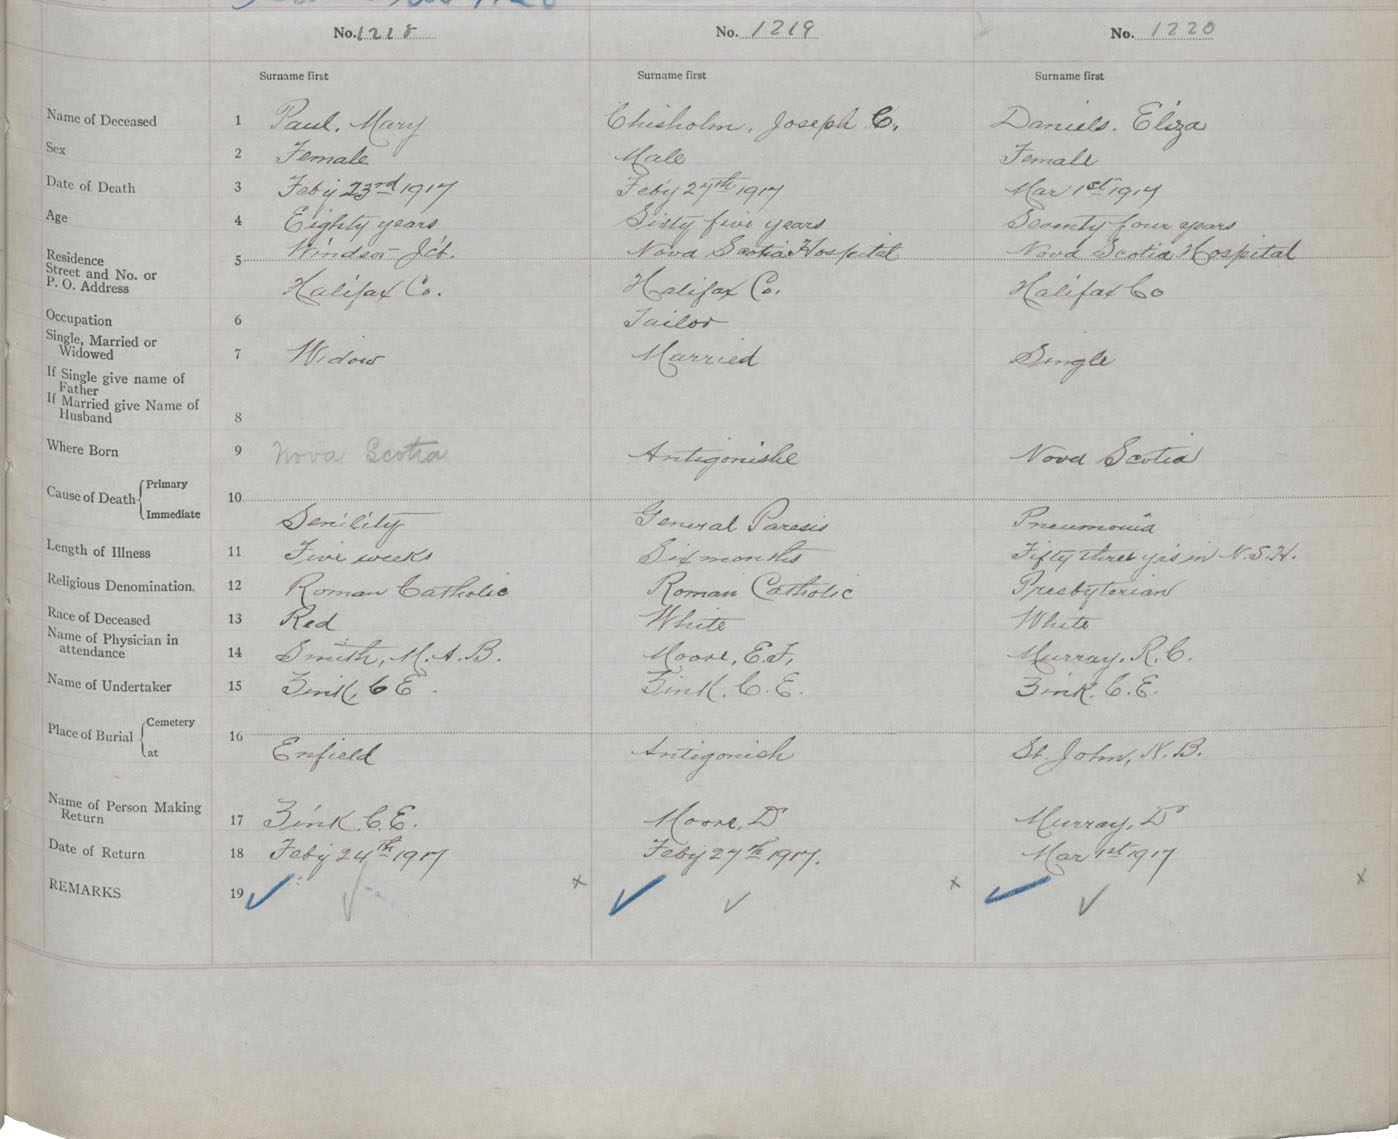 No. 1218 No. 1219 No. 1220
Surname first Surname first Surname first
Name of Deceased 1 Paul, Mary Chisholm, Joseph C. Daniels. Eliza
Sex 2 Female Male Female
Date of Death 3 Feby 23rd 1917 Feby 27th 1917 Mar 1st 1917
Age 4 Eighty years Sixty five years Seventy four years
Residence Windsor Jct. Nova Scotia Hospital Nova Scotia Hospital
Street and No. or 5
P. O. Address Halifax Co. Halifax Co. Halifax Co
Occupation 6 Tailor
Single, Married or
Widowed 7 Widow Married Single
If Single give name of
Father
If Married give Name of
Husband 8
Where Born 9 Nova Scotia Antigonishe Nova Scotia
Primary
Cause of Death 10
Immediate Senility General Paresis Pneumonia
Length of Illness 11 Five weeks Six months Fifty three yrs in N.S.H.
Religious Denomination. 12 Roman Catholic Roman Catholic Presbyterian
Race of Deceased 13 Red White White
Name of Physician in
attendance 14 Smith, M.A.B. Moore, E.F. Murray, R.C.
Name of Undertaker 15 Zink, C E. Zink. C.E. Zink. C.E.
Cemetery
Place of Burial 16
at Enfield Antigonish St. John, N.B.
Name of Person Making
Return 17 Zink. C.E. Moore, Dr Murray, Dr
Date of Return 18 Feby 24th 1917 Feby 27th 1917. Mar 1st 1917
REMARKS 19